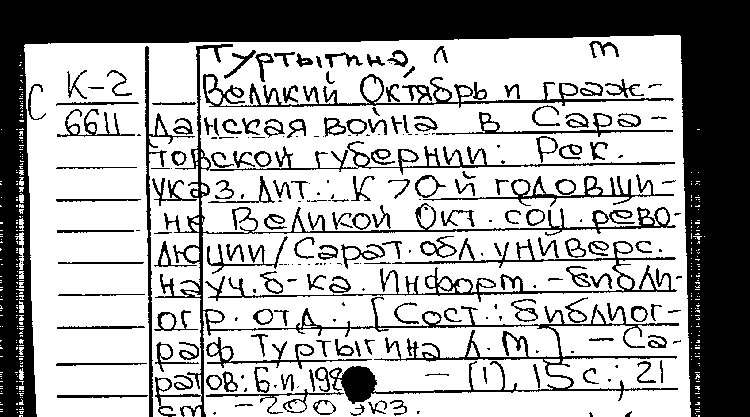 Туртыгина, Л m
К-2 Великий Октябрь и граж-
С 6611 данская война в Сара-
товской губернии: Рек.
указ. лит.: К 70-й годовщи-
не Великой Окт. соц. рево-
люции/Сарат. обл. универс.
науч. б-ка. Информ.-библи-
огр. отд.; [Сост.: библиог-
раф Туртыгина Л.М.] - Са-
ратов: Б.и, 198 - [1], 15 с.; 21
см. - 200 экз.